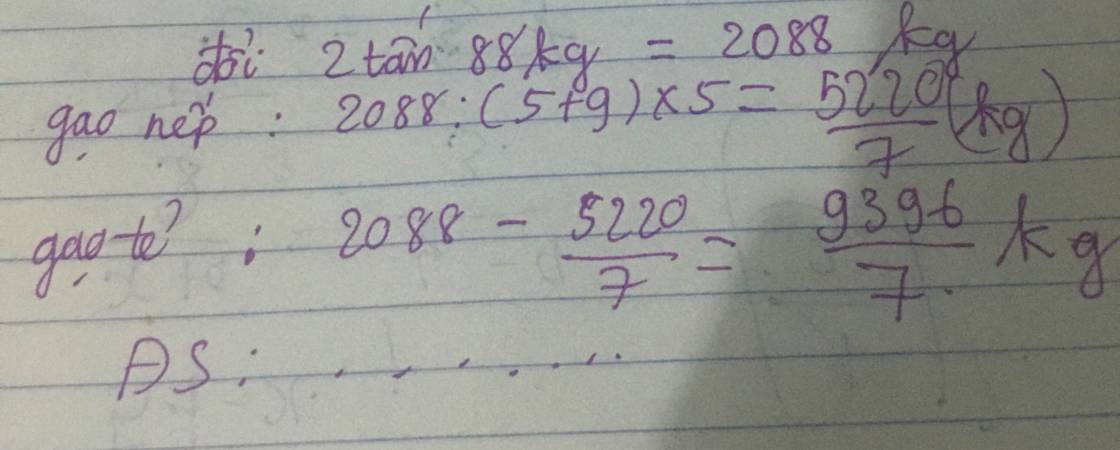 đổi: 2 tấn 88 kg = 2088 kg
gạo nếp : 2088 : (5+9) x 5 = 5220/7 (kg)
gạo tẻ : 2088 - 5220/7 = 9396/7 kg
ĐS : . . . . . . .